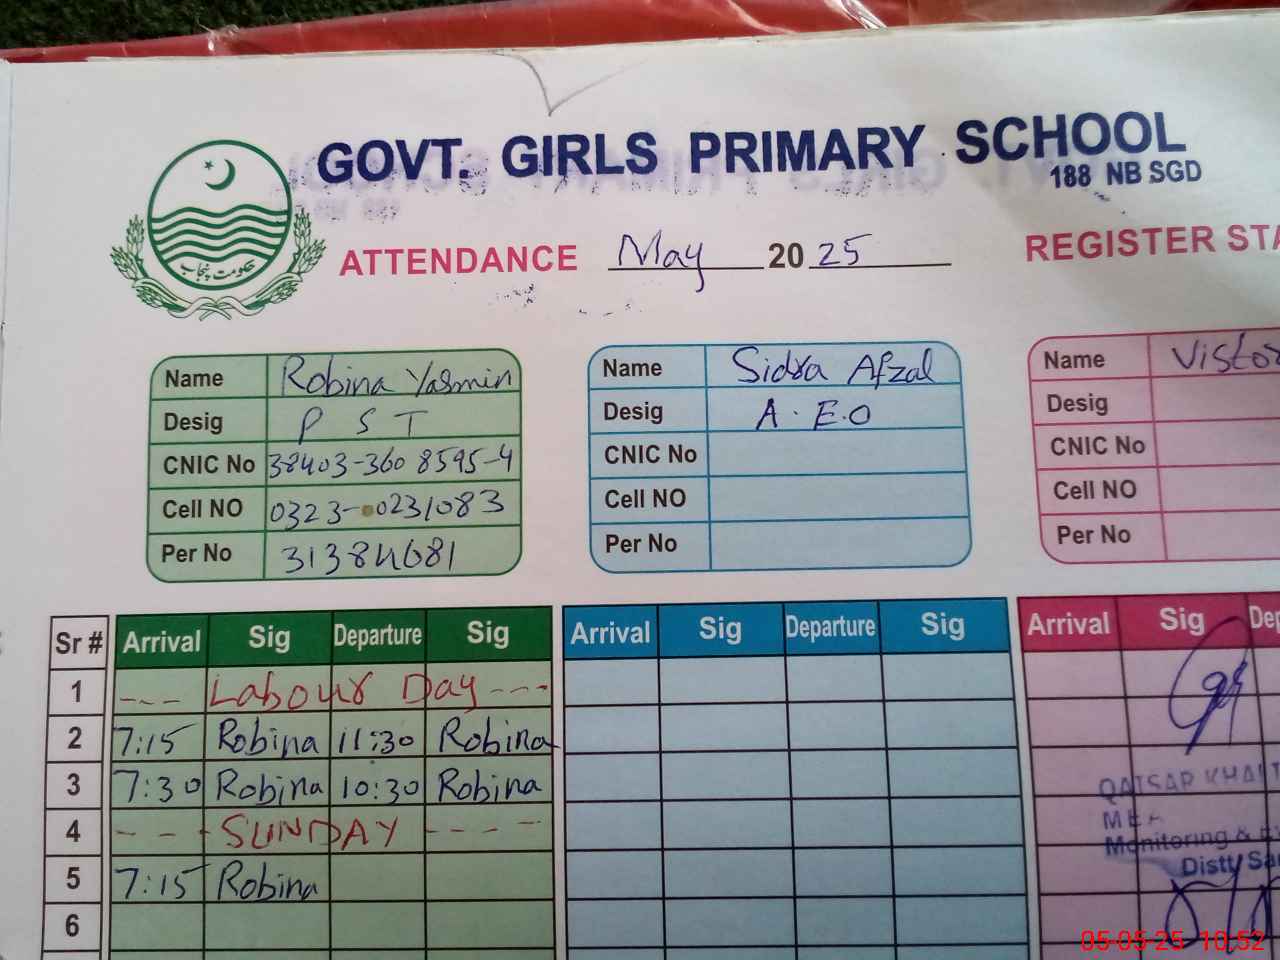 GOVT. GIRLS PRIMARY SCHOOL
188 NB SGD
حکومت پنجاب
ATTENDANCE May 2025 REGISTER STA
Name Robina Yasmin Name Sidra Afzal Name Vistor
Desig P S T Desig A.E.O Desig
CNIC No 38403-3608595-4 CNIC No CNIC No
Cell NO 0323-0231083 Cell NO Cell NO
Per No 31384681 Per No Per No
Sr # Arrival Sig Departure Sig Arrival Sig Departure Sig Arrival Sig Dep
1 --- Labour Day ---
2 7:15 Robina 11:30 Robina
3 7:30 Robina 10:30 Robina
QAISAR KHALI
4 --- SUNDAY ----
MEA
Monitoring & E
5 7:15 Robina
Distt Sa
6
05-05-25 10:52